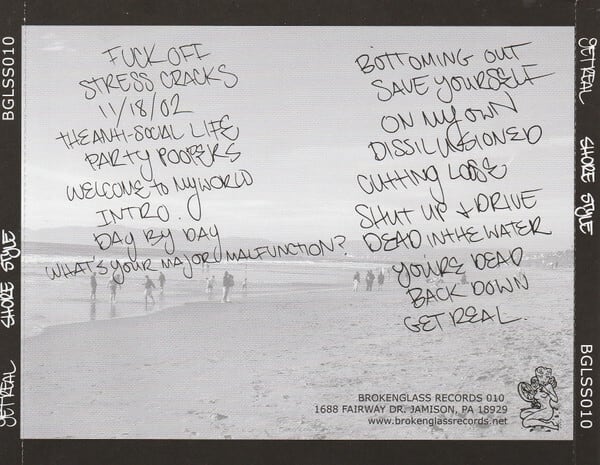 BGLSS010
GETREAL SHORE STYLE
FUCK OFF
STRESS CRACKS
11/18/02
THE ANTI-SOCIAL LIFE
PARTY POOPERS
WELCOME to MY WORLD
INTRO.
DAY BY DAY
WHAT'S YOUR MAJOR MALFUNCTION?
BOTTOMING OUT
SAVE YOURSELF
ON MY OWN
DISSILLUSIONED
CUTTING LOOSE
SHUT UP & DRIVE
DEAD IN THE WATER
YOU'RE DEAD
BACK DOWN
GET REAL.
BROKENGLASS RECORDS 010
1688 FAIRWAY DR. JAMISON, PA 18929
www.brokenglassrecords.net
GETREAL SHORE STYLE
BGLSS010